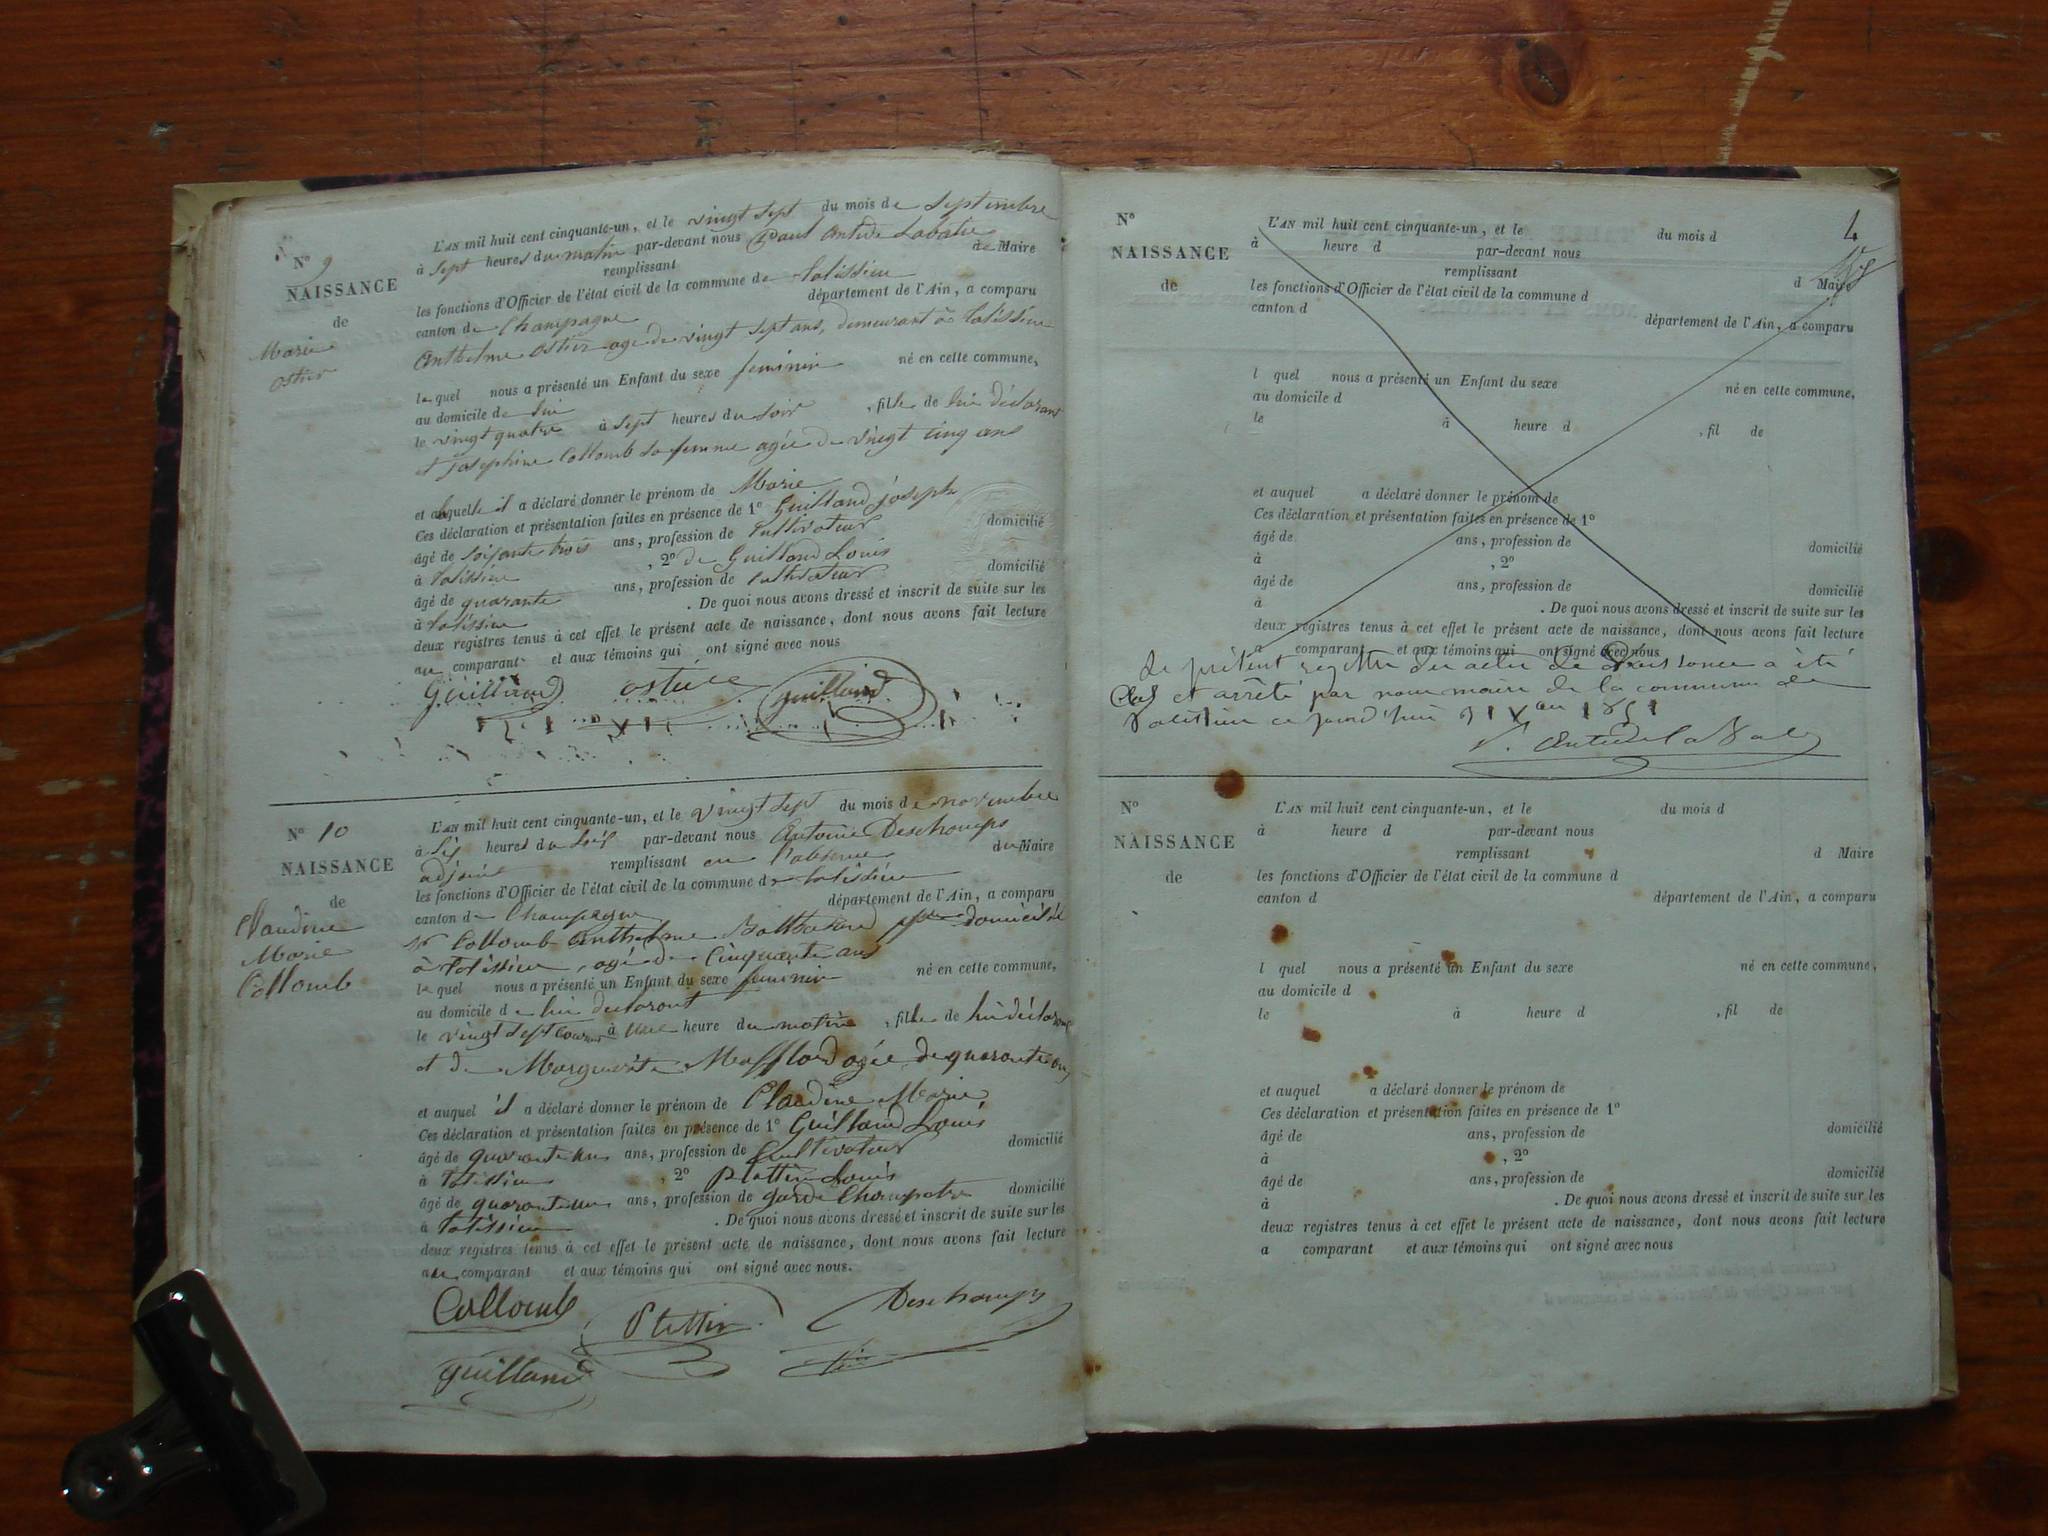 N° 9
NAISSANCE
de
Marie
ostier
L'AN mil huit cent cinquante-un, et le vingt sept du mois de septembre
à sept heures du matin par-devant nous Paul Antide Labatie
remplissant de Maire
les fonctions d'Officier de l'état civil de la commune de talissieu
canton de Champagne département de l'Ain, a comparu
Anthelme ostier age de vingt sept ans, demeurant à talissieu
lequel nous a présenté un Enfant du sexe feminin né en cette commune,
au domicile de lui
le vingt quatre à sept heures du soir , fille de lui déclarant
et josephine Collomb sa femme agée de vingt cinq ans
et alaquelle il a déclaré donner le prénom de Marie
Ces déclaration et présentation faites en présence de 1° Guilland joseph
âgé de soixante trois ans, profession de cultivateur domicilié
à talissieu , 2° de Guilland Louis
âgé de quarante ans, profession de cultivateur domicilié
à talissieu . De quoi nous avons dressé et inscrit de suite sur les
deux registres tenus à cet effet le présent acte de naissance, dont nous avons fait lecture
au comparant et aux témoins qui ont signé avec nous
Guilland ostier guilland
N° 10
NAISSANCE
de
Claudine
Marie
Collomb
L'AN mil huit cent cinquante-un, et le vingt sept du mois de novembre
à six heures du soir par-devant nous Antoine Deschamps
adjoint remplissant en l'absence du Maire
les fonctions d'Officier de l'état civil de la commune de talissieu
canton de Champagne département de l'Ain, a comparu
Sr Collomb Anthelme Balthazard ppre domicilié
à talissieu, agé de Cinquante ans
lequel nous a présenté un Enfant du sexe feminin né en cette commune,
au domicile de lui declarant
le vingt sept courant à une heure du matin , fille de lui déclarant
et de Marguerite agée de quarante ans
et auquel il a déclaré donner le prénom de Claudine Marie
Ces déclaration et présentation faites en présence de 1° Guilland Louis
âgé de quarante un ans, profession de Cultivateur domicilié
à talissieu , 2° Plattin Louis
âgé de quarante un ans, profession de garde Champetre domicilié
à talissieu . De quoi nous avons dressé et inscrit de suite sur les
deux registres tenus à cet effet le présent acte de naissance, dont nous avons fait lecture
au comparant et aux témoins qui ont signé avec nous.
Collomb Plattin Deschamps
guilland
4
N°
NAISSANCE
de
L'AN mil huit cent cinquante-un, et le du mois d
à heure d par-devant nous
remplissant d Maire
les fonctions d'Officier de l'état civil de la commune d
canton d département de l'Ain, a comparu
l quel nous a présenté un Enfant du sexe né en cette commune,
au domicile d
le à heure d , fil de
et auquel a déclaré donner le prénom de
Ces déclaration et présentation faites en présence de 1°
âgé de ans, profession de domicilié
à , 2°
âgé de ans, profession de domicilié
à . De quoi nous avons dressé et inscrit de suite sur les
deux registres tenus à cet effet le présent acte de naissance, dont nous avons fait lecture
a comparant et aux témoins qui ont signé avec nous
Le présent registre des actes de Naissance a été
Clos et arrêté par nous maire de la commune de
talissieu ce jourd'hui 31 Xbre 1851
N°
NAISSANCE
de
L'AN mil huit cent cinquante-un, et le du mois d
à heure d par-devant nous
remplissant d Maire
les fonctions d'Officier de l'état civil de la commune d
canton d département de l'Ain, a comparu
l quel nous a présenté un Enfant du sexe né en cette commune,
au domicile d
le à heure d , fil de
et auquel a déclaré donner le prénom de
Ces déclaration et présentation faites en présence de 1°
âgé de ans, profession de domicilié
à , 2°
âgé de ans, profession de domicilié
à . De quoi nous avons dressé et inscrit de suite sur les
deux registres tenus à cet effet le présent acte de naissance, dont nous avons fait lecture
a comparant et aux témoins qui ont signé avec nous